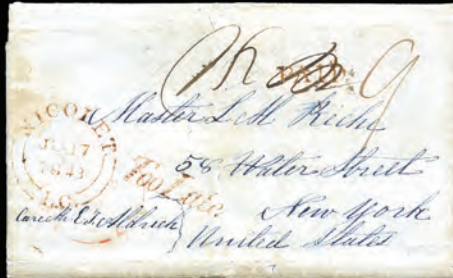 PAID 9
NICOLET
JU 17
1843
L.C.
Too Late
Master L. M. Riche
58 Water Street
New York
United States
Care of E. T. Aldrich